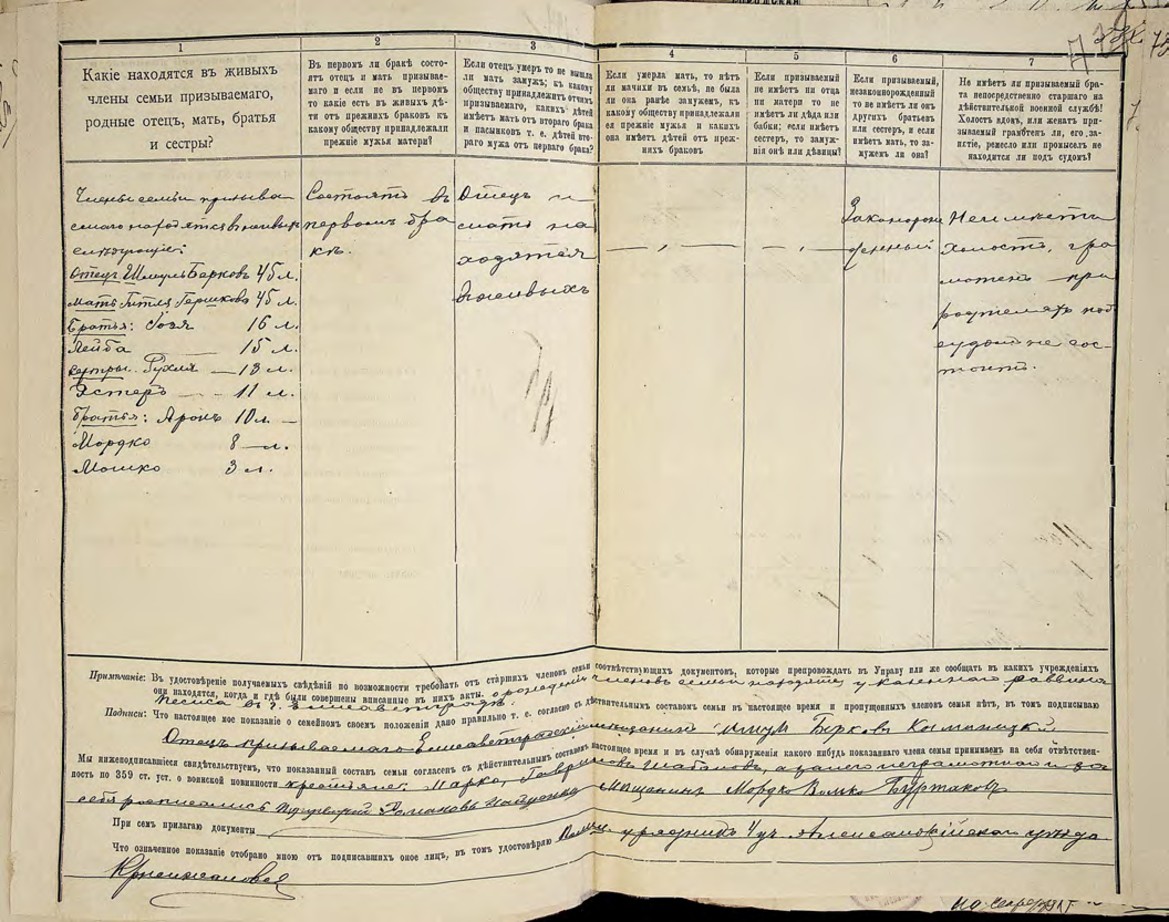 ГОРОДСКАЯ
1
Какіе находятся въ живыхъ
члены семьи призываемаго,
родные отецъ, мать, братья
и сестры?
2
Въ первомъ ли бракѣ состо-
ятъ отецъ и мать призывае-
маго и если не въ первомъ
то какіе есть въ живыхъ дѣ-
ти отъ прежнихъ браковъ къ
какому обществу принадлежали
прежніе мужья матери?
3
Если отецъ умеръ то не вышла
ли мать замужъ; къ какому
обществу принадлежитъ отчимъ
призываемаго, какихъ дѣтей
имѣетъ мать отъ втораго брака
и пасынковъ т. е. дѣтей вто-
раго мужа отъ перваго брака?
4
Если умерла мать, то нѣтъ
ли мачихи въ семьѣ, не была
ли она ранѣе замужемъ, къ
какому обществу принадлежали
ея прежніе мужья и какихъ
она имѣетъ дѣтей отъ преж-
нихъ браковъ
5
Если призываемый
не имѣетъ ни отца
ни матери то не
имѣетъ ли дѣда или
бабки; если имѣетъ
сестеръ, то замуж-
нія онѣ или дѣвицы?
6
Если призываемый,
незаконорожденный
то не имѣетъ ли онъ
другихъ братьевъ
или сестеръ, и если
имѣетъ мать, то за-
мужемъ ли она?
7
Не имѣетъ ли призываемый бра-
та непосредственно старшаго на
дѣйствительной военной службѣ!
Холостъ вдовъ, или женатъ при-
зываемый грамотенъ ли, его за-
нятіе, ремесло или промыселъ не
находится ли подъ судомъ?
Члены семьи призыва
емаго находятся въ живых
слѣдующіе:
Отецъ Шмуль Берковъ 45 л.
Мать Гитля Гершкова 45 л.
Братья: 16 л.
Лейба 15 л.
Сестры: Рухля — 13 л.
Эстеръ — 11 л.
Братья: Аронъ 10 л. —
Мордко 8 — л.
Мошко 3 л.
Состоятъ въ
первомъ бра
кѣ.
Отецъ и
мать на
ходятся
въ живыхъ
— „ —
— „ —
Законорож
денный
Не имѣетъ
Холостъ, гра
мотенъ при
родителяхъ под
судомъ не сос-
тоитъ.
Примѣчаніе: Въ удостовѣреніе получаемыхъ свѣдѣній по возможности требовать отъ старшихъ членовъ семьи соотвѣтствующихъ документовъ, которые препровождать въ Управу или же сообщать въ какихъ учрежденіяхъ
они находятся, когда и гдѣ были совершены вписанные въ нихъ акты. о рожденіи членовъ семьи находятся у казеннаго раввина
въ г. Елисаветградѣ.
Подписи: Что настоящее мое показаніе о семейномъ своемъ положеніи дано правильно т. е. согласно съ дѣйствительнымъ составомъ семьи въ настоящее время и пропущенныхъ членовъ семьи нѣтъ, въ томъ подписываю
Отецъ призываемаго Елисаветградскій мѣщанинъ Шмул Берковъ
Мы нижеподписавшіеся свидѣтельствуемъ, что показанный составъ семьи согласенъ съ дѣйствительнымъ составомъ настоящее время и въ случаѣ обнаруженія какого нибудь показаннаго члена семьи принимаемъ на себя отвѣтствен-
ность по 359 ст. уст. о воинской повинности крестьяне: Марко Гавриловъ Шаталовъ, а за него неграмотнаго и за
себя росписался Романовъ Мѣщанинъ Мордко
При семъ прилагаю документы
Что означенное показаніе отобрано мною отъ подписавшихъ оное лицъ, въ томъ удостовѣряю урядникъ 4 уч. Александрійскаго уѣзда